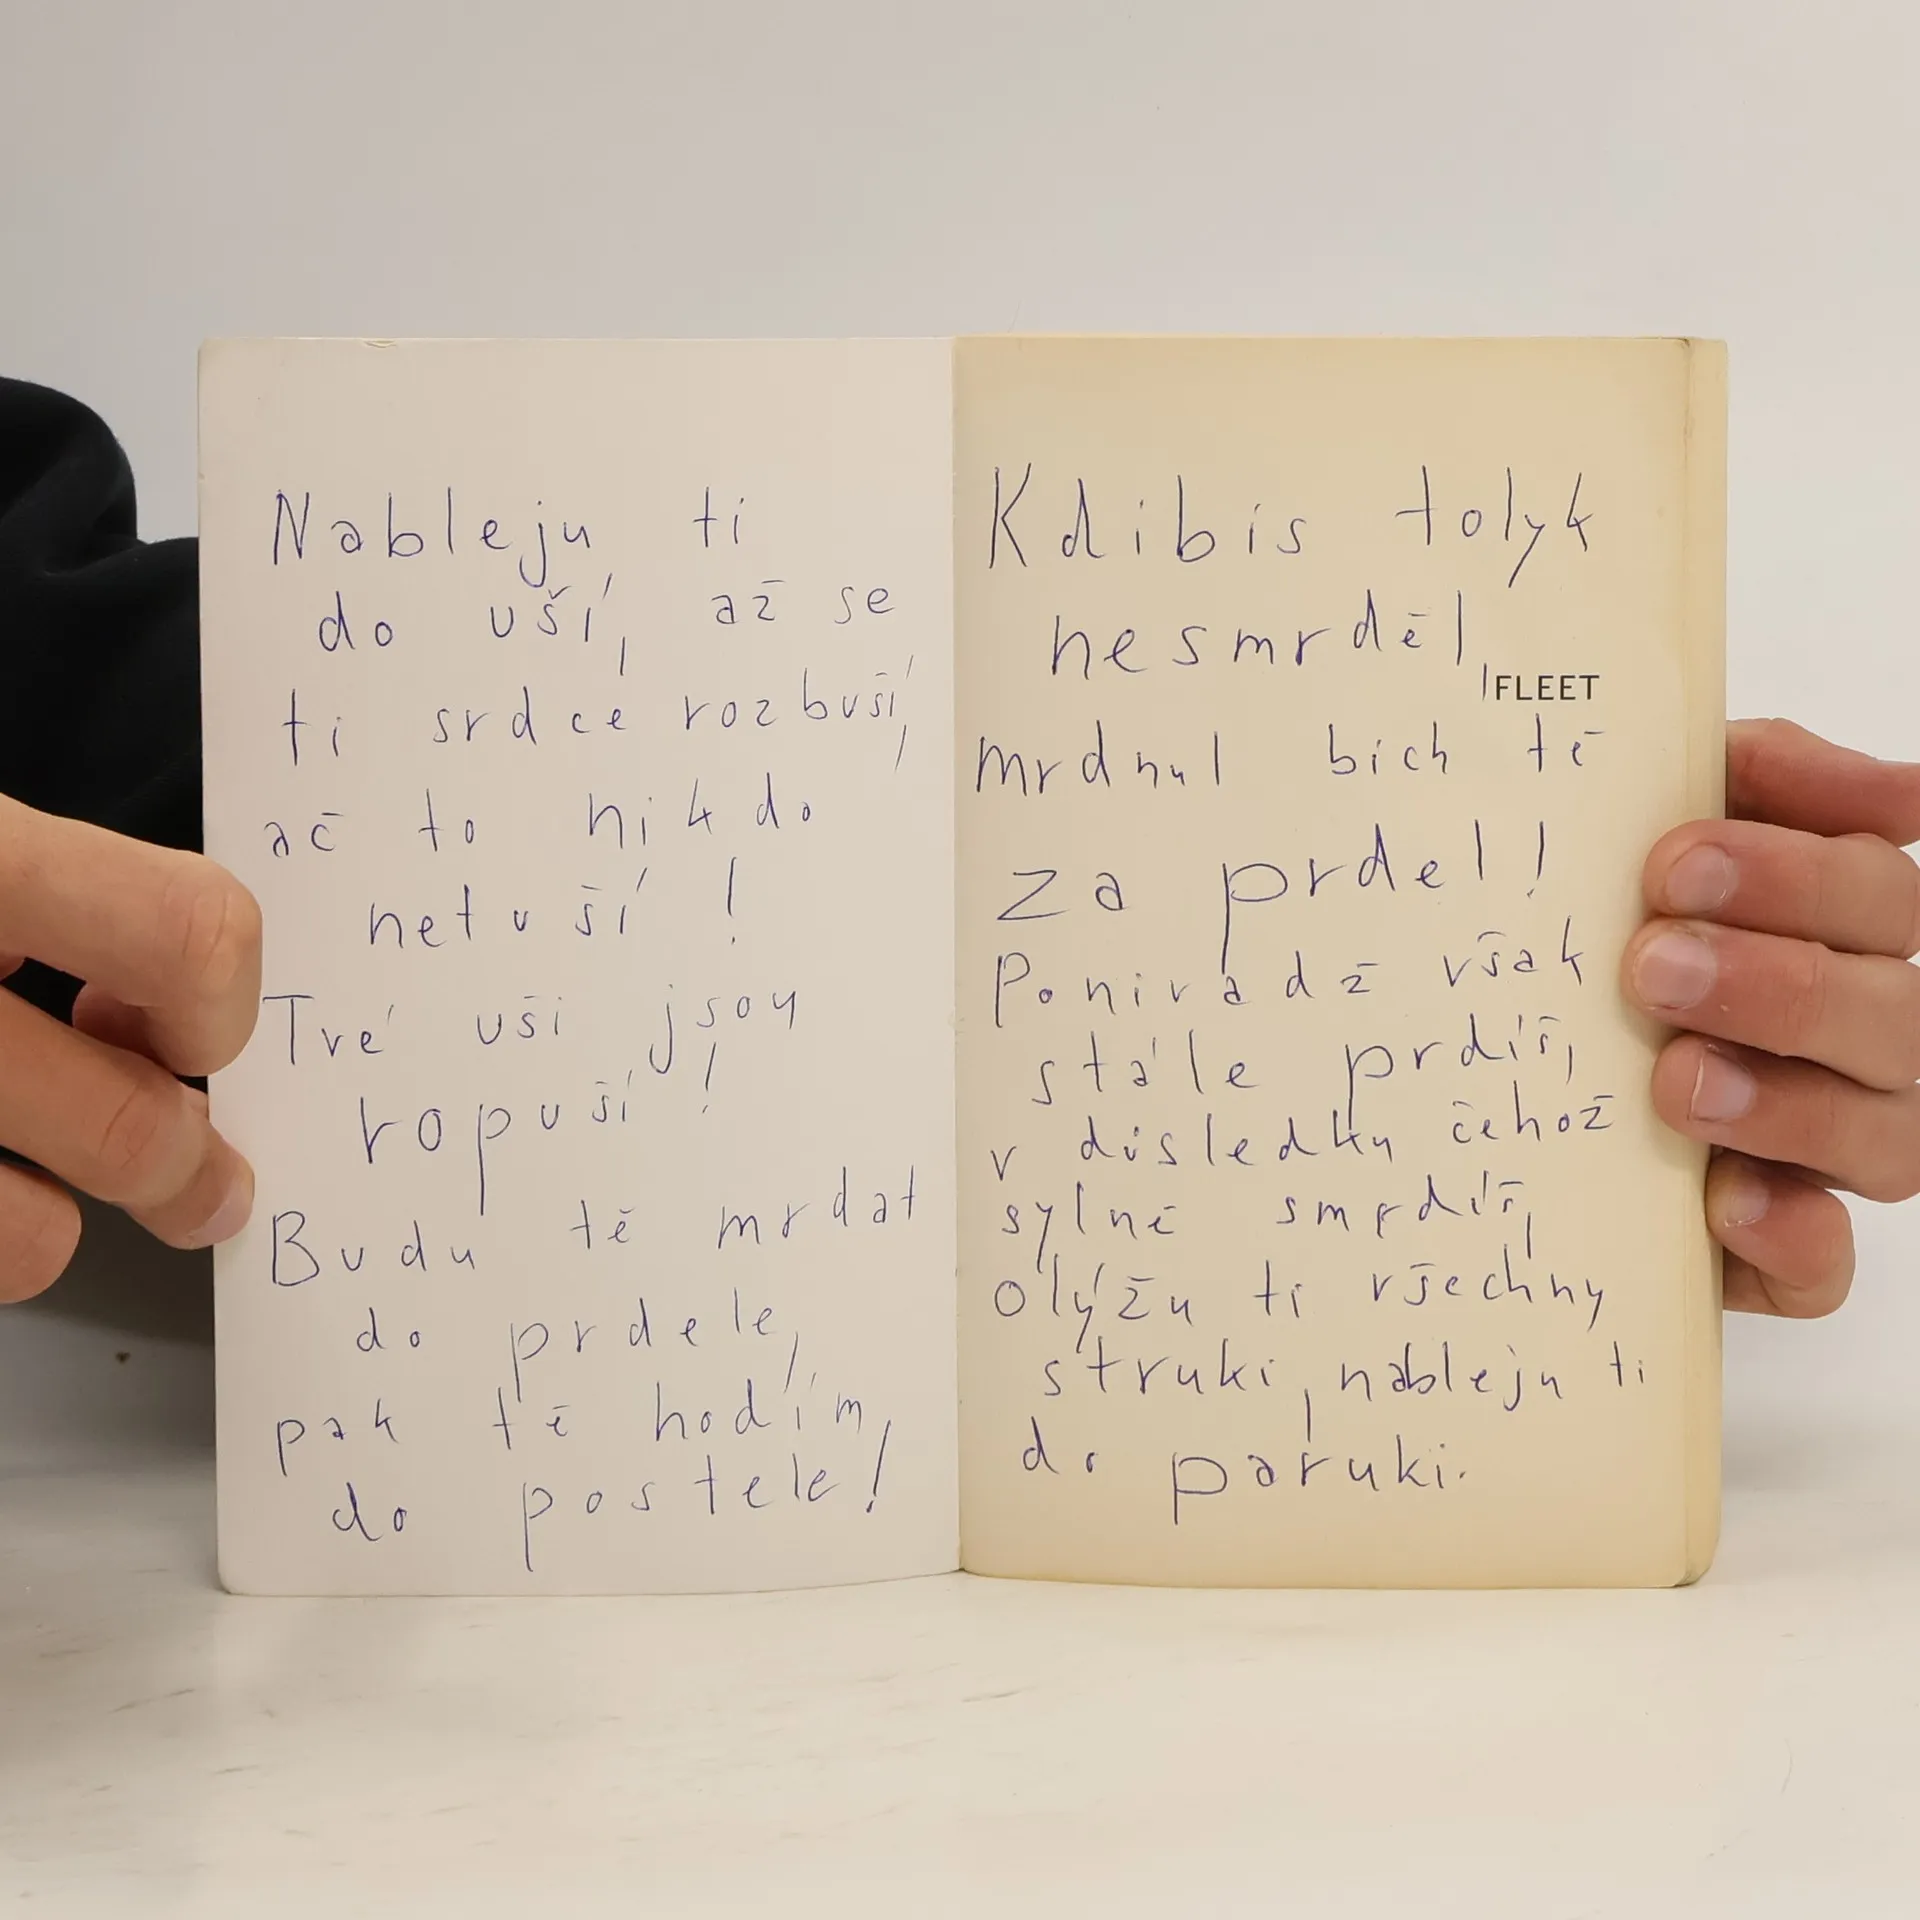 Nableju ti
do uší, až se
ti srdce rozbuší,
ač to nikdo
netuší!
Tvé uši jsou
ropuší!
Budu tě mrdat
do prdele,
pak tě hodím
do postele!
Kdibis tolyk
nesmrděl,
FLEET
mrdnul bich tě
za prdel!
Ponivadž však
stále prdíš,
v důsledku čehož
sylně smrdíš,
olýžu ti všechny
struki, nableju ti
do paruki.